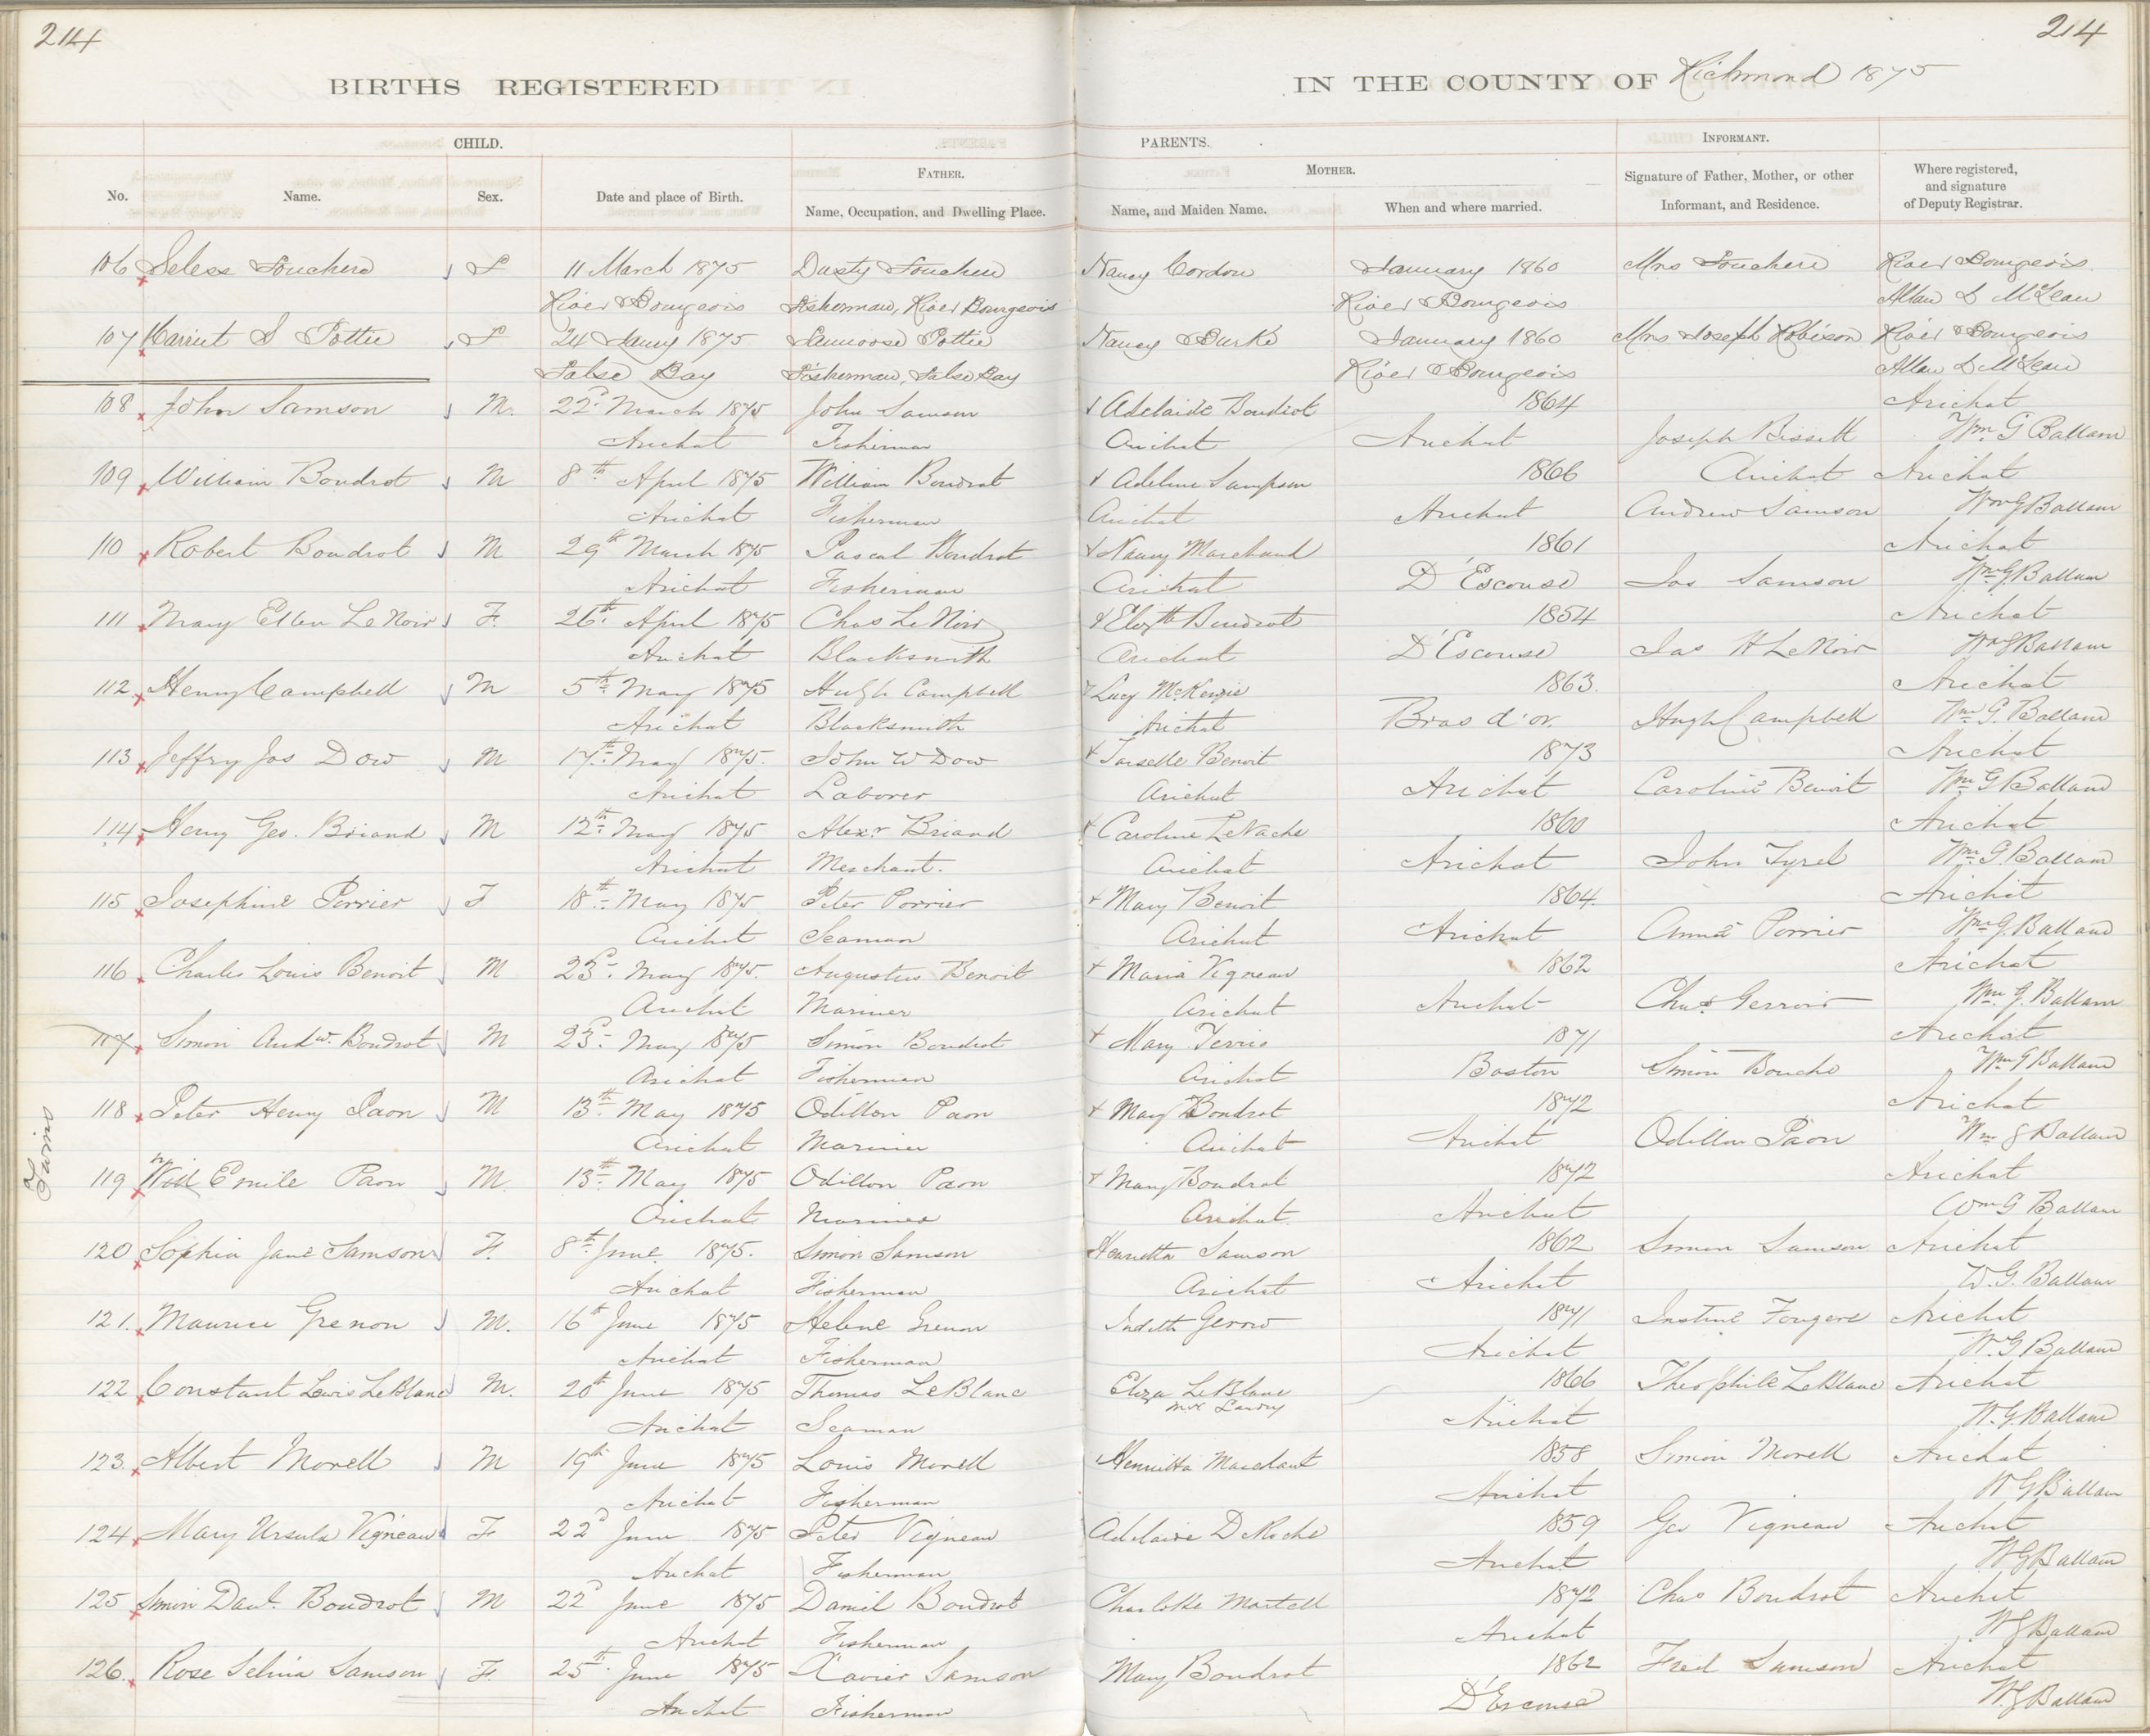 214
214
BIRTHS REGISTERED
IN THE COUNTY OF Richmond 1875
CHILD.
PARENTS.
INFORMANT.
FATHER.
MOTHER.
No.
Name.
Sex.
Date and place of Birth.
Name, Occupation, and Dwelling Place.
Name, and Maiden Name.
When and where married.
Signature of Father, Mother, or other
Informant, and Residence.
Where registered,
and signature
of Deputy Registrar.
106 Seless F 11 March 1875 Nancy Cordon January 1860 Mrs River Bourgeois
River Bourgeois Fisherman, River Bourgeois River Bourgeois Allan D McLean
107 Harriet S Pottie F 24 Jany 1875 Pottie Nancy Burke January 1860 Mrs Joseph Robison River Bourgeois
False Bay Fisherman, False Bay River Bourgeois Allan D McLean
108 John Samson M. 22d March 1875 John Samson Adelaide Boudrot 1864 Arichat
Arichat Fisherman Arichat Arichat Joseph Bissett Wm G Ballam
109 William Boudrot M 8th April 1875 William Boudrot Adeline Sampson 1866 Arichat Arichat
Arichat Fisherman Arichat Arichat Andrew Samson Wm G Ballam
110 Robert Boudrot M 29th March 1875 Pascal Boudrot Nancy Marchand 1861 Arichat
Arichat Fisherman Arichat D'Escouse Jas Samson Wm G Ballam
111 Mary Ellen LeNoir F. 26th April 1875 Chas LeNoir Elizth Boudrot 1854 Arichat
Arichat Blacksmith Arichat D'Escouse Jas H LeNoir Wm G Ballam
112 Henry Campbell M 5th May 1875 Hugh Campbell Lucy McKenzie 1863. Arichat
Arichat Blacksmith Arichat Bras d'or. Hugh Campbell Wm G. Ballam
113 Jeffry Jas Dow M 17th May 1875. John W Dow Benoit 1873 Arichat
Arichat Laborer Arichat Arichat Caroline Benoit Wm G Ballam
114 Henry Geo. Briand M 12th May 1875 Alexr Briand Caroline LeVache 1860 Arichat
Arichat Merchant. Arichat Arichat John Tyrel Wm G. Ballam
115 Josephine Porrier F 18th May 1875 Peter Porrier Mary Benoit 1864. Arichat
Arichat Seaman Arichat Arichat Anna Porrier Wm G. Ballam
116 Charles Louis Benoit M 23d May 1875. Augustus Benoit Maria Vigneau 1862 Arichat
Arichat Mariner Arichat Arichat Chas Gerroir Wm G. Ballam
117 Simon Andw. Boudrot M 23d May 1875 Simon Boudrot Mary Ferris 1871 Arichat
Arichat Fisherman Arichat Boston Simon Bouche Wm G Ballam
Twins
118 Peter Henry Paon M 13th May 1875 Odillon Paon Mary Boudrot 1872 Arichat
Arichat Mariner Arichat Arichat Odillon Paon Wm G Ballam
119 Wm Emile Paon M. 13th May 1875 Odillon Paon Mary Boudrot 1872 Arichat
Arichat Mariner Arichat Arichat Wm G Ballam
120 Sophia Jane Samson F. 8th June 1875. Simon Samson Henrietta Samson 1862 Simon Samson Arichat
Arichat Fisherman Arichat Arichat W. G. Ballam
121. Maurice Grenon M. 16th June 1875 Helene Grenon Judith Gerow 1871 Fougere Arichat
Arichat Fisherman Arichat W. G Ballam
122 Constant Lewis LeBlanc M. 20th June 1875 Thomas LeBlanc Eliza LeBlanc 1866 Theophile LeBlanc Arichat
Landry
Arichat Seaman Arichat W. G. Ballam
123. Albert Morell M 19th June 1875 Louis Morell Henrietta Marchant 1858 Simon Morell Arichat
Arichat Fisherman Arichat W G Ballam
124 Mary Ursula Vigneau F 22d June 1875 Peter Vigneau Adelaide DeRoche 1859 Geo Vigneau Arichat
Arichat Fisherman Arichat W G Ballam
125 Simon Danl. Boudrot M 22d June 1875 Daniel Boudrot Charlotte Martell 1872 Chas Boudrot Arichat
Arichat Fisherman Arichat W G Ballam
126. Rose Selina Samson F. 25th June 1875 Xavier Samson Mary Boudrot 1862 Fred Samson Arichat
Arichat Fisherman D'Escouse W. G Ballam